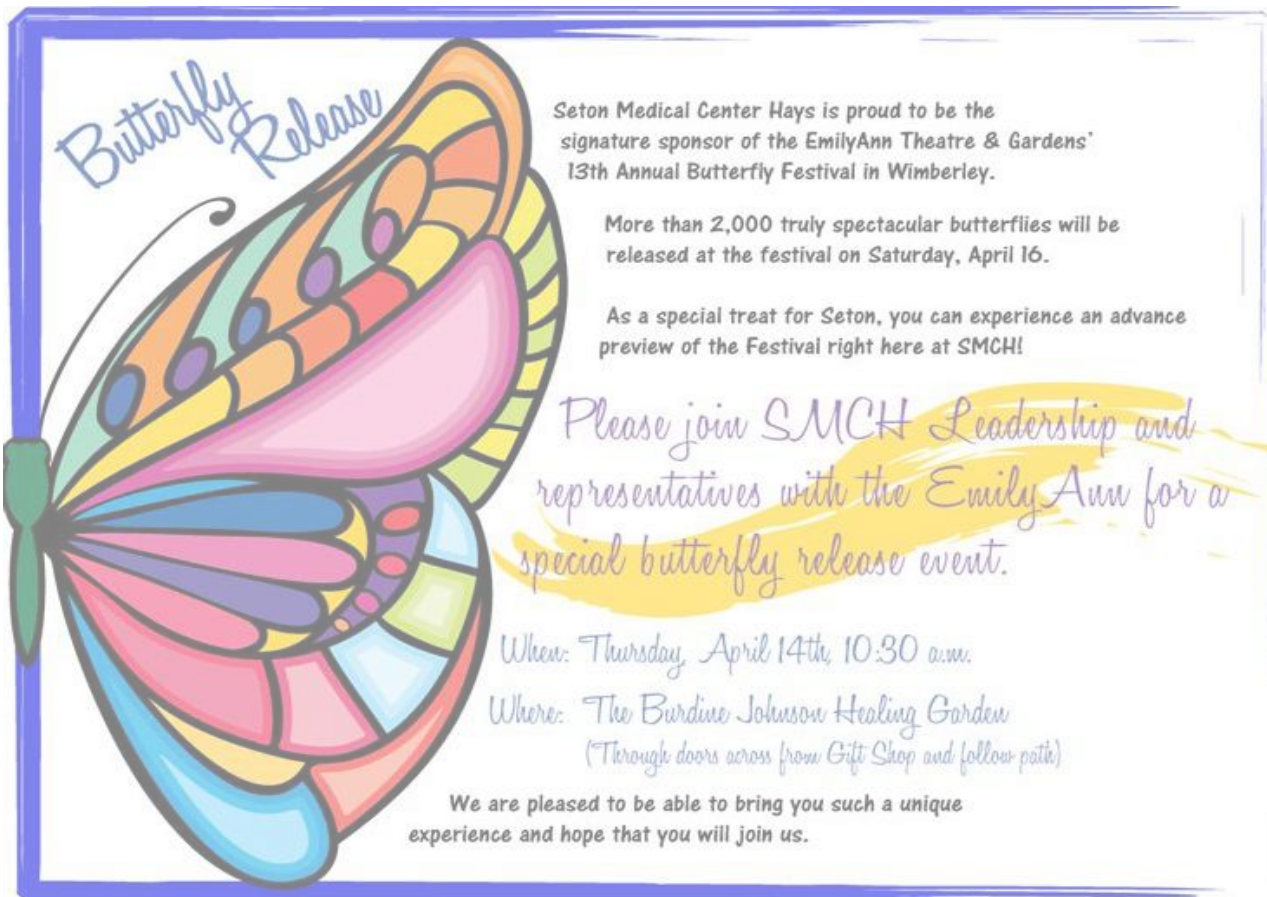 Butterfly
Release
Seton Medical Center Hays is proud to be the
signature sponsor of the EmilyAnn Theatre & Gardens'
13th Annual Butterfly Festival in Wimberley.
More than 2,000 truly spectacular butterflies will be
released at the festival on Saturday, April 16.
As a special treat for Seton, you can experience an advance
preview of the Festival right here at SMCH!
Please join SMCH Leadership and
representatives with the EmilyAnn for a
special butterfly release event.
When: Thursday, April 14th, 10:30 a.m.
Where: The Burdine Johnson Healing Garden
(Through doors across from Gift Shop and follow path)
We are pleased to be able to bring you such a unique
experience and hope that you will join us.